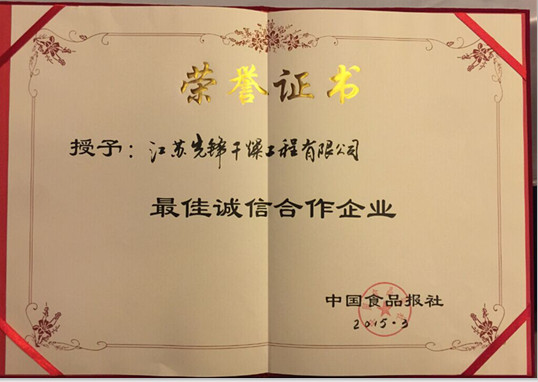 荣誉证书
授予：江苏先锋干燥工程有限公司
最佳诚信合作企业
中国食品报社
2015.3